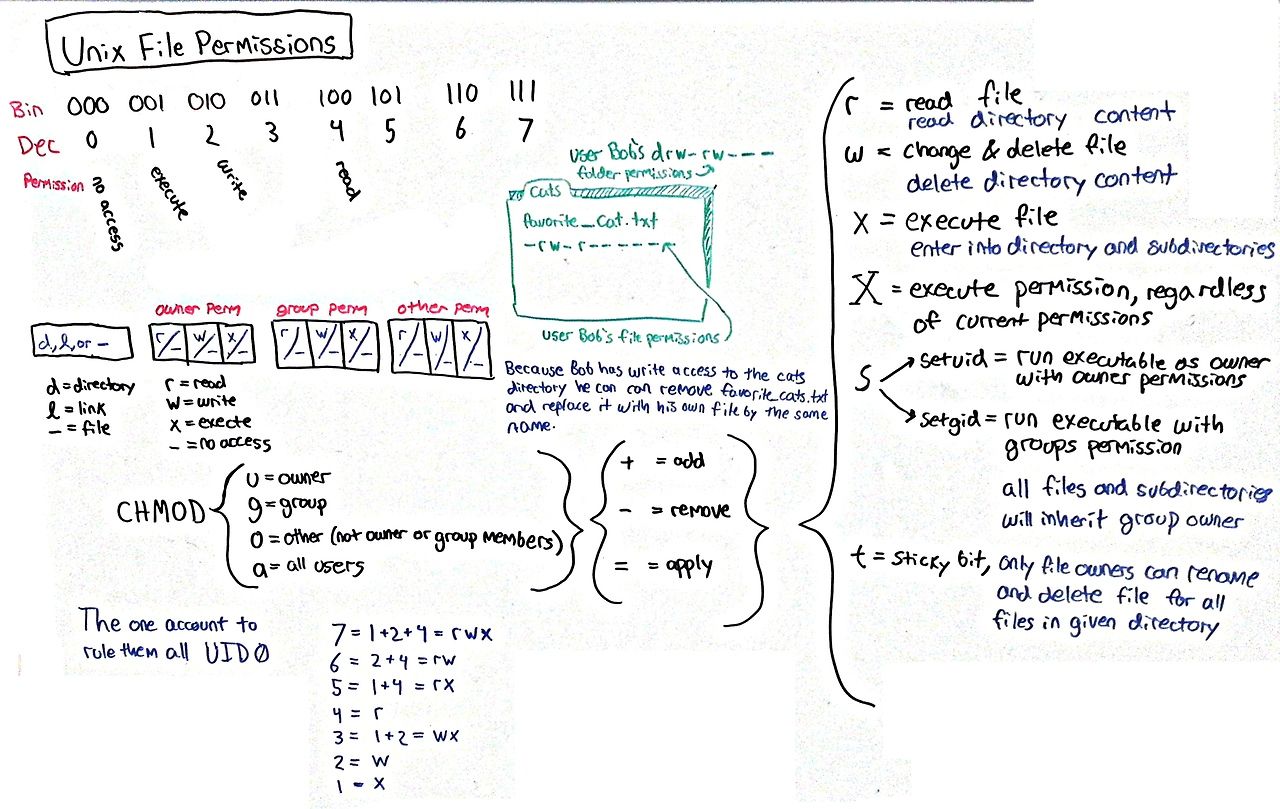 Unix File Permissions
Bin 000 001 010 011 100 101 110 111
Dec 0 1 2 3 4 5 6 7
Permission no access execute write read
user Bob's drw-rw----
folder permissions
cats
favorite_Cat.txt
-rw-r------
user Bob's file permissions
Because Bob has write access to the cats
directory he can can remove favorite_cats.txt
and replace it with his own file by the same
name.
owner perm group perm other perm
d, l, or - r/- w/- x/- r/- w/- x/- r/- w/- x/-
d = directory
l = link
- = file
r = read
w = write
x = execte
- = no access
CHMOD
u = owner
g = group
o = other (not owner or group members)
a = all users
+ = add
- = remove
= = apply
r = read file
read directory content
w = change & delete file
delete directory content
x = execute file
enter into directory and subdirectories
X = execute permission, regardless
of current permissions
s
setuid = run executable as owner
with owner permissions
setgid = run executable with
groups permission
all files and subdirectories
will inherit group owner
t = sticky bit, only file owners can rename
and delete file for all
files in given directory
The one account to
rule them all UID0
7 = 1+2+4 = rwx
6 = 2+4 = rw
5 = 1+4 = rx
4 = r
3 = 1+2 = wx
2 = w
1 - x